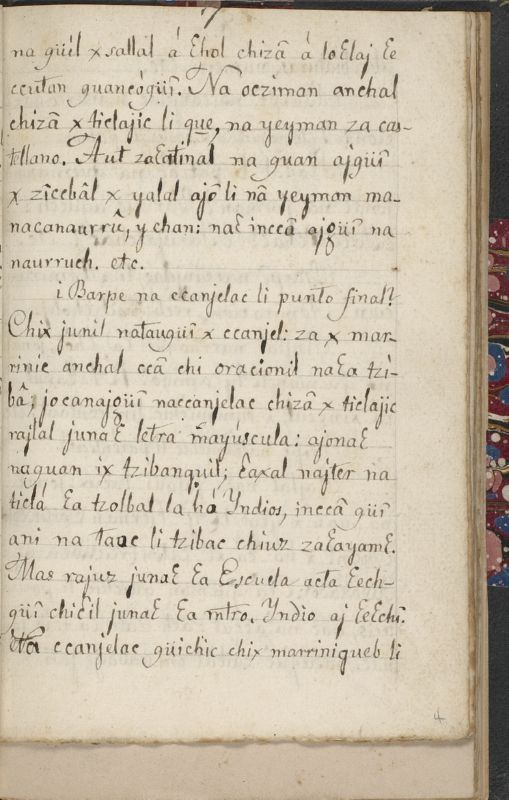 na güil x sallal á Ꜫhol chizâ á loꜪlaj Ꜫe
ccutan guancógüĩ. Na oczíman anchal
chizâ x ticlajic li que, na yeyman za cas-
tellano. Aut zaꜪatinal na guan ajgüĩ
x zicebâl x yalal ajõ li nâ yeyman ma-
nacanaurrû, y chan: naꜪ inccâ ajgüĩ na
naurruch. etc.
¿Barpe na ccanjelac li punto final?
Chix junil natauguĩ x ccanjel: za x mar-
rinic anchal ccâ chi oracionil naꜪa tzi-
bâ; jocanajgüĩ naccanjelac chizâ x ticlajic
rajlal junaꜪ letra mayúscula: ajonaꜪ
naguan ix tzibanquil; Ꜫaxal najter na
ticlá Ꜫa tzolbal la há Yndios, inccâ güĩ
ani na taoc li tzibac chiuz zaꜪayamꜪ.
Mas rajuz junaꜪ Ꜫa Escuela acta Ꜫech-
güĩ chiꜪil junaꜪ Ꜫa mtro. Yndio aj ꜪeꜪchi.
Na ccanjelac güichic chix marriniqueb li
4